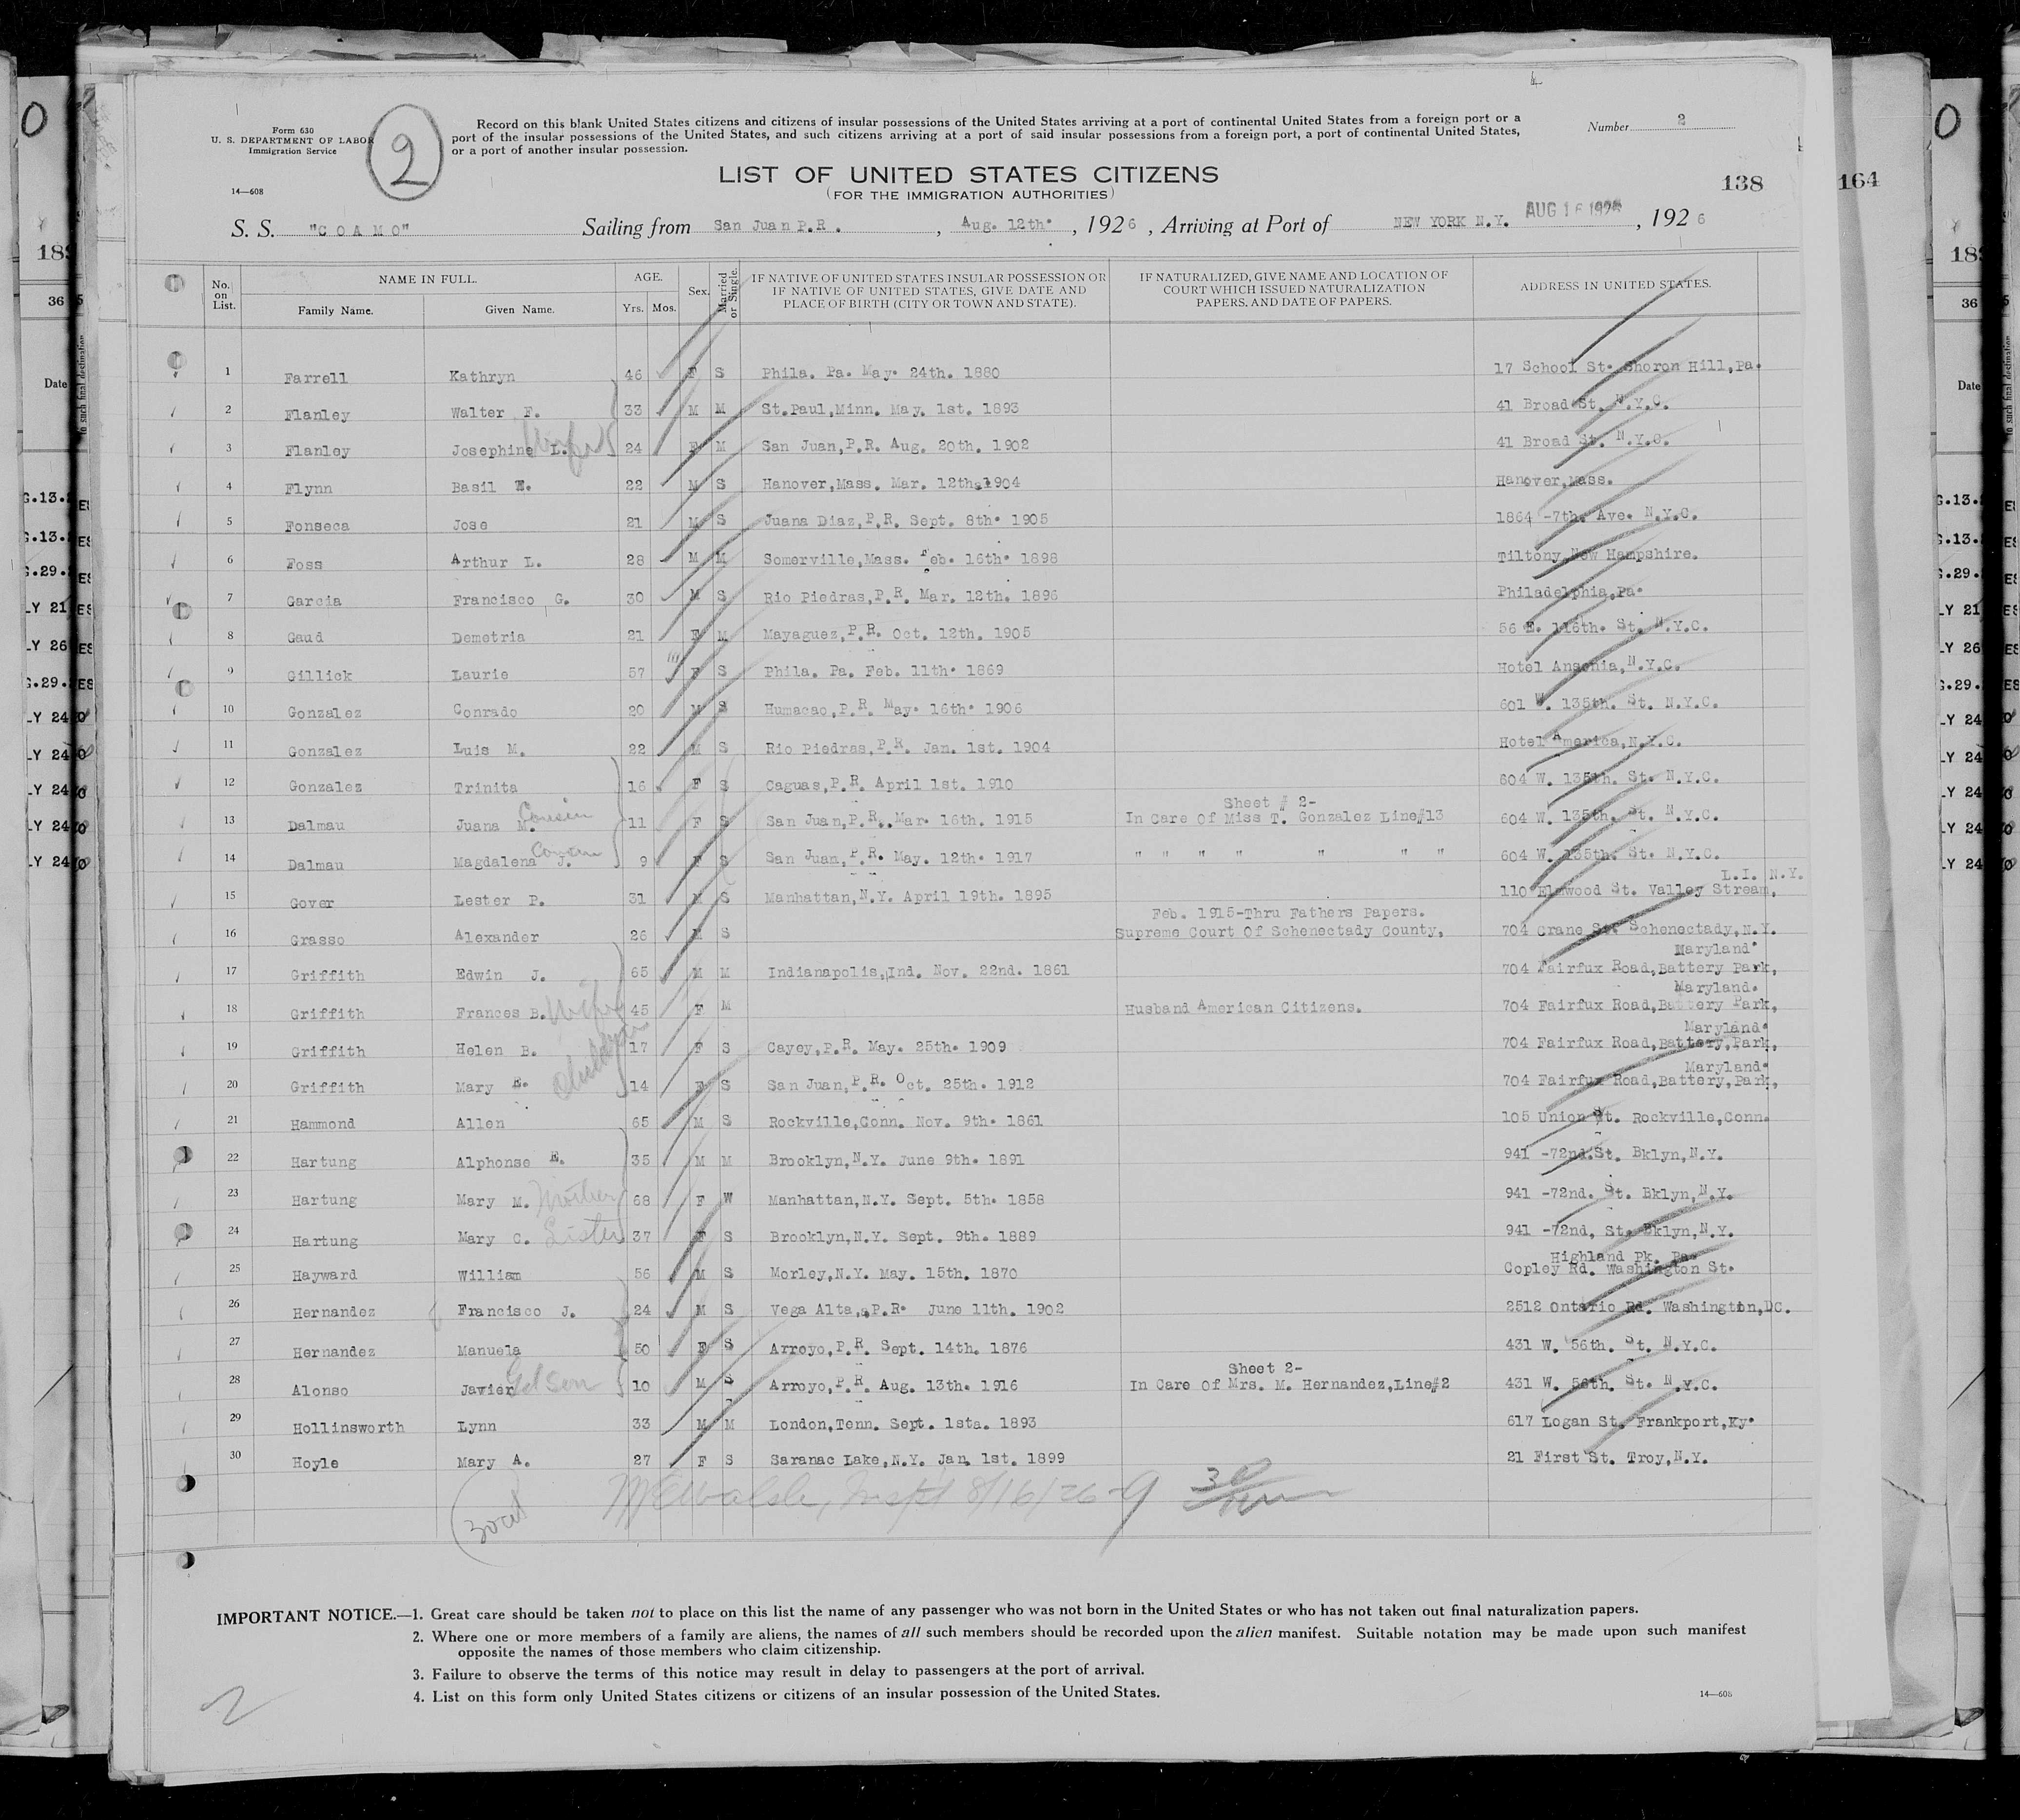 Form 630
U. S. DEPARTMENT OF LABOR
Immigration Service
14—608
2
Record on this blank United States citizens and citizens of insular possessions of the United States arriving at a port of continental United States from a foreign port or a
port of the insular possessions of the United States, and such citizens arriving at a port of said insular possessions from a foreign port, a port of continental United States,
or a port of another insular possession.
Number 2
LIST OF UNITED STATES CITIZENS
(FOR THE IMMIGRATION AUTHORITIES)
138
164
S. S. "C O A M O" Sailing from San Juan P.R. , Aug. 12th. , 1926 , Arriving at Port of NEW YORK N.Y. AUG 16 1926 , 1926
No. on List. NAME IN FULL. Family Name. Given Name. AGE. Yrs. Mos. Sex. Married or Single. IF NATIVE OF UNITED STATES INSULAR POSSESSION OR IF NATIVE OF UNITED STATES, GIVE DATE AND PLACE OF BIRTH (CITY OR TOWN AND STATE). IF NATURALIZED, GIVE NAME AND LOCATION OF COURT WHICH ISSUED NATURALIZATION PAPERS, AND DATE OF PAPERS. ADDRESS IN UNITED STATES.
1 Farrell Kathryn 46 F S Phila. Pa. May. 24th. 1880 17 School St. Shoron Hill, Pa.
2 Flanley Walter F. 33 M M St.Paul,Minn. May. 1st. 1893 41 Broad St. N.Y.C.
3 Flanley Josephine L. Wife 24 F M San Juan,P.R. Aug. 20th. 1902 41 Broad St. N.Y.C.
4 Flynn Basil E. 22 M S Hanover,Mass. Mar. 12th.1904 Hanover,Mass.
5 Fonseca Jose 21 M S Juana Diaz,P.R. Sept. 8th. 1905 1864 -7th. Ave. N.Y.C.
6 Foss Arthur L. 28 M M Somerville,Mass. Feb. 16th. 1898 Tiltony,New Hampshire.
7 Garcia Francisco G. 30 M S Rio Piedras,P.R. Mar. 12th. 1896 Philadelphia,Pa.
8 Gaud Demetria 21 F M Mayaguez,P.R. Oct. 12th. 1905 56 E. 116th. St. N.Y.C.
9 Gillick Laurie 57 F S Phila. Pa. Feb. 11th. 1869 Hotel Ansonia,N.Y.C.
10 Gonzalez Conrado 20 M S Humacao,P.R. May. 16th. 1906 601 W. 135th. St. N.Y.C.
11 Gonzalez Luis M. 22 M S Rio Piedras,P.R. Jan. 1st. 1904 Hotel America,N.Y.C.
12 Gonzalez Trinita 16 F S Caguas,P.R. April 1st. 1910 604 W. 135th. St. N.Y.C.
Sheet # 2-
13 Dalmau Juana M. Cousin 11 F S San Juan,P.R..Mar. 16th. 1915 In Care Of Miss T. Gonzalez Line#13 604 W. 135th. St. N.Y.C.
14 Dalmau Magdalena J. Cousin 9 F S San Juan,P.R. May. 12th. 1917 " " " " " " " 604 W. 135th. St. N.Y.C.
L.I. N.Y.
15 Gover Lester P. 31 M S Manhattan,N.Y. April 19th. 1895 110 Elmwood St. Valley Stream,
Feb. 1915-Thru Fathers Papers.
16 Grasso Alexander 26 M S Supreme Court Of Schenectady County, 704 Crane St. Schenectady,N.Y.
Maryland.
17 Griffith Edwin J. 65 M M Indianapolis,Ind. Nov. 22nd. 1861 704 Fairfux Road,Battery Park,
Maryland.
18 Griffith Frances B. Wife 45 F M Husband American Citizens. 704 Fairfux Road,Battery Park,
Maryland.
19 Griffith Helen B. children 17 F S Cayey,P.R. May. 25th. 1909 704 Fairfux Road,Battery,Park,
Maryland.
20 Griffith Mary E. 14 F S San Juan,P.R. Oct. 25th. 1912 704 Fairfux Road,Battery,Park,
21 Hammond Allen 65 M S Rockville,Conn. Nov. 9th. 1861 105 Union St. Rockville,Conn.
22 Hartung Alphonse E. 35 M M Brooklyn,N.Y. June 9th. 1891 941 -72nd.St. Bklyn,N.Y.
23 Hartung Mary M. Mother 68 F W Manhattan,N.Y. Sept. 5th. 1858 941 -72nd. St. Bklyn,N.Y.
24 Hartung Mary C. Sister 37 F S Brooklyn,N.Y. Sept. 9th. 1889 941 -72nd, St. Bklyn,N.Y.
Highland Pk. Pa.
25 Hayward William 56 M S Morley,N.Y. May. 15th. 1870 Copley Rd. Washington St.
26 Hernandez Francisco J. 24 M S Vega Alta,P.R. June 11th. 1902 2512 Ontario Rd. Washington,DC.
27 Hernandez Manuela 50 F S Arroyo,P.R. Sept. 14th. 1876 431 W. 56th. St. N.Y.C.
Sheet 2-
28 Alonso Javier 10 M S Arroyo,P.R. Aug. 13th. 1916 In Care Of Mrs. M. Hernandez,Line#2 431 W. 56th. St. N.Y.C.
29 Hollinsworth Lynn 33 M M London,Tenn. Sept. 1sta. 1893 617 Logan St. Frankport,Ky.
30 Hoyle Mary A. 27 F S Saranac Lake,N.Y. Jan. 1st. 1899 21 First St. Troy,N.Y.
8/16/26
IMPORTANT NOTICE.—1. Great care should be taken not to place on this list the name of any passenger who was not born in the United States or who has not taken out final naturalization papers.
2. Where one or more members of a family are aliens, the names of all such members should be recorded upon the alien manifest. Suitable notation may be made upon such manifest
opposite the names of those members who claim citizenship.
3. Failure to observe the terms of this notice may result in delay to passengers at the port of arrival.
4. List on this form only United States citizens or citizens of an insular possession of the United States.
14—608
2